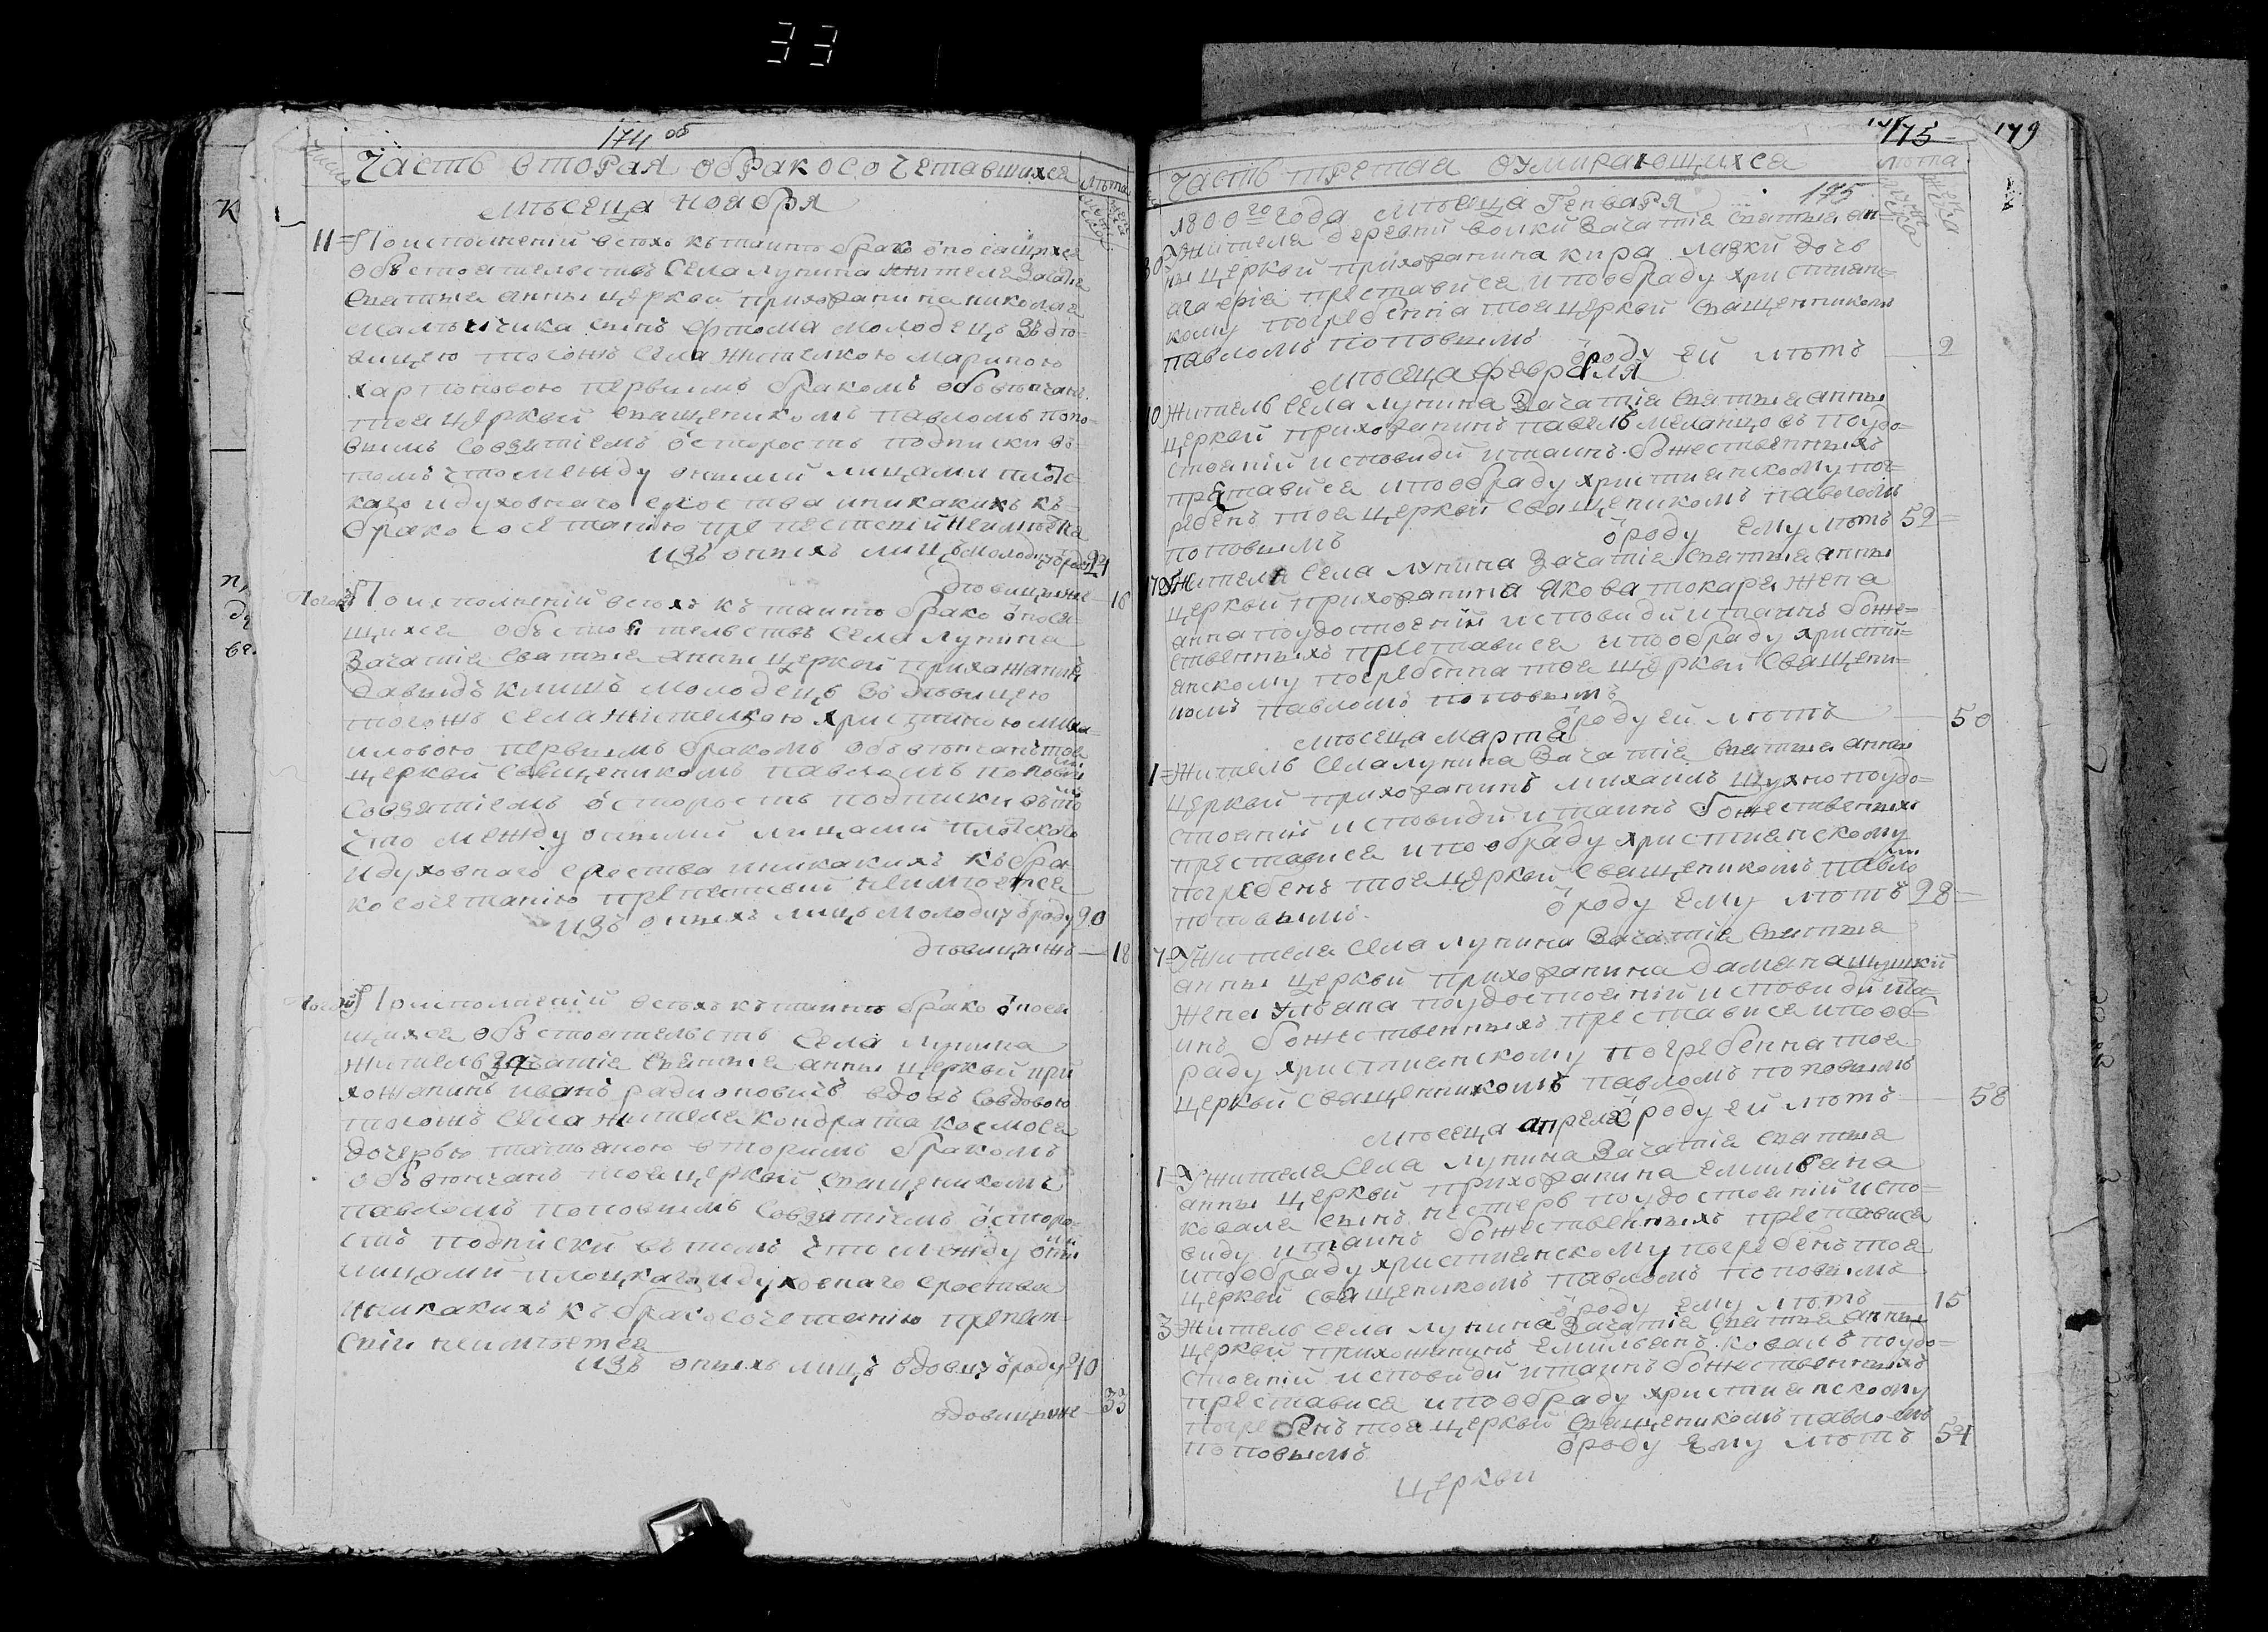 33
174 об
Число
Часть вторая о бракосочетавшихся
Лѣта
Мѣсеца ноабря
11 = По исполнений всѣхъ къ таинѣ брако относащихса
обстоятельствъ Села лунина жителя Зачатія
Сватыя анны церквй прихожанина николая
Мальчика сынъ Артома молодецъ Зъ дѣ-
вицею тогожъ села жителкою Мариною
харитоновою первымъ бракомъ обвѣнчанъ
тоя церквй священикомъ павломъ попо-
вымъ Совзатіемъ осторость подписки въ
томъ что между оными лицами плотс-
каго идуховнаго сроства иникакихъ къ
бракосочетанію препетствій неимѣется
Изъ оныхъ лицъ молодцу ѿроду 24
дѣвицы же — 16
Тогожъ По исполнений всѣхъ къ таинѣ брако относа-
щихса обстоятельствъ Села лунина
Зачатія сватыя анны церквй прихажанинъ
давыдъ климъ молодецъ Зъ дѣвицею
тогожъ села жителкою христиною миха-
иловою первымъ бракомъ обвѣнчанъ тоя
церквй священикомъ павломъ поповымъ
Совзатіемъ осторость подписки въ томъ
что между оными лицами плотскаго
идуховнаго сроства иникакихъ къ бра-
косочетанію препетствій неимѣетса
изъ оныхъ лицъ молодцу ѿроду 20
дѣвицы жъ — 18
Тогожъ По исполнений всѣхъ къ таинѣ брако относа-
щихса обстоятельствъ Села лунина
житель зачатіа сватыя анны церквй при-
хожанинъ иванъ радионовичъ вдовъ совдовою
тогожъ села жителя кондрата космоса
дочерью татьяною вторимъ бракомъ
обвѣнчанъ тоя церквй священикомъ
павломъ поповымъ Совзатіемъ осторо-
сть подписки въ томъ что между оными
лицами плоцкаго идуховнаго сроства
иникакихъ къ бракосочетанію препет-
свій неимѣетса
изъ оныхъ лицъ вдовцу ѿроду 40
вдовицы же — 33
175 179
Часть третая о умирающихса
Лѣта
175
1800го года Мѣсяца Генваря
30 У жителя деревнй волкй Зачатіа сватыя ан-
ны церквй прихожанина кира лазкй дочь
агафіа престависа ипообраду христиан-
кому погребенна тоя церквй священникомъ
павломъ поповымъ
ѿроду ей лѣтъ 2
Мѣсеца февраля
10 житель села лунина Зачатіа сватыя анны
церквй прихожанинъ павелъ меланцовъ поудо-
стоенйи исповиди итаинъ божественныхъ
престависа ипообраду христианскому пог-
ребенъ тоя церквй священикомъ павломъ
поповымъ ѿроду ему лѣтъ 52
17 У жителя села лунина Зачатіа сватыя анны
церквй прихожанина якова токаря жена
анна поудостоенйи исповиди итаинъ боже-
ственныхъ престависа ипообраду христи-
анскому погребенна тоя церквй священи-
комъ павломъ поповымъ
ѿроду ей лѣтъ — 50
Мѣсеца Марта
1 = Житель села лунина Зачатіа сватыя анны
церквй прихожанинъ михаилъ щухно поудо-
стоенйи исповиди итаинъ божественныхъ
престависа ипообраду христианскому
погребенъ тоя церквй священикомъ павломъ
поповымъ. ѿроду ему лѣтъ 28
7 = У жителя села лунина Зачатіа сватыя
анны церквй прихожанина дамяна шушкй
жена ульяна поудостоенйи исповиди ита-
инъ божественныхъ престависа ипооб-
раду христианскому погребенна тоя
церквй священникомъ павломъ поповымъ
ѿроду ей лѣтъ — 58
Мѣсеца апреля
1 = У жителя села лунина Зачатіа сватыя
анны церквй прихожанина емильяна
коваля сынъ нестеръ поудостоенйи испо-
виду итаинъ божественныхъ престависа
ипообраду христианскому погребенъ тоя
церквй священикомъ павломъ поповымъ
ѿроду ему лѣтъ — 15
3 = Житель села лунина Зачатіа сватыя анны
церквй прихожанинъ емильянъ коваль поудо-
стоенйи исповиди итаинъ божественныхъ
престависа ипообраду христианскому
погребенъ тоя церквй священикомъ павломъ
поповымъ ѿроду ему лѣтъ 54
Церкви